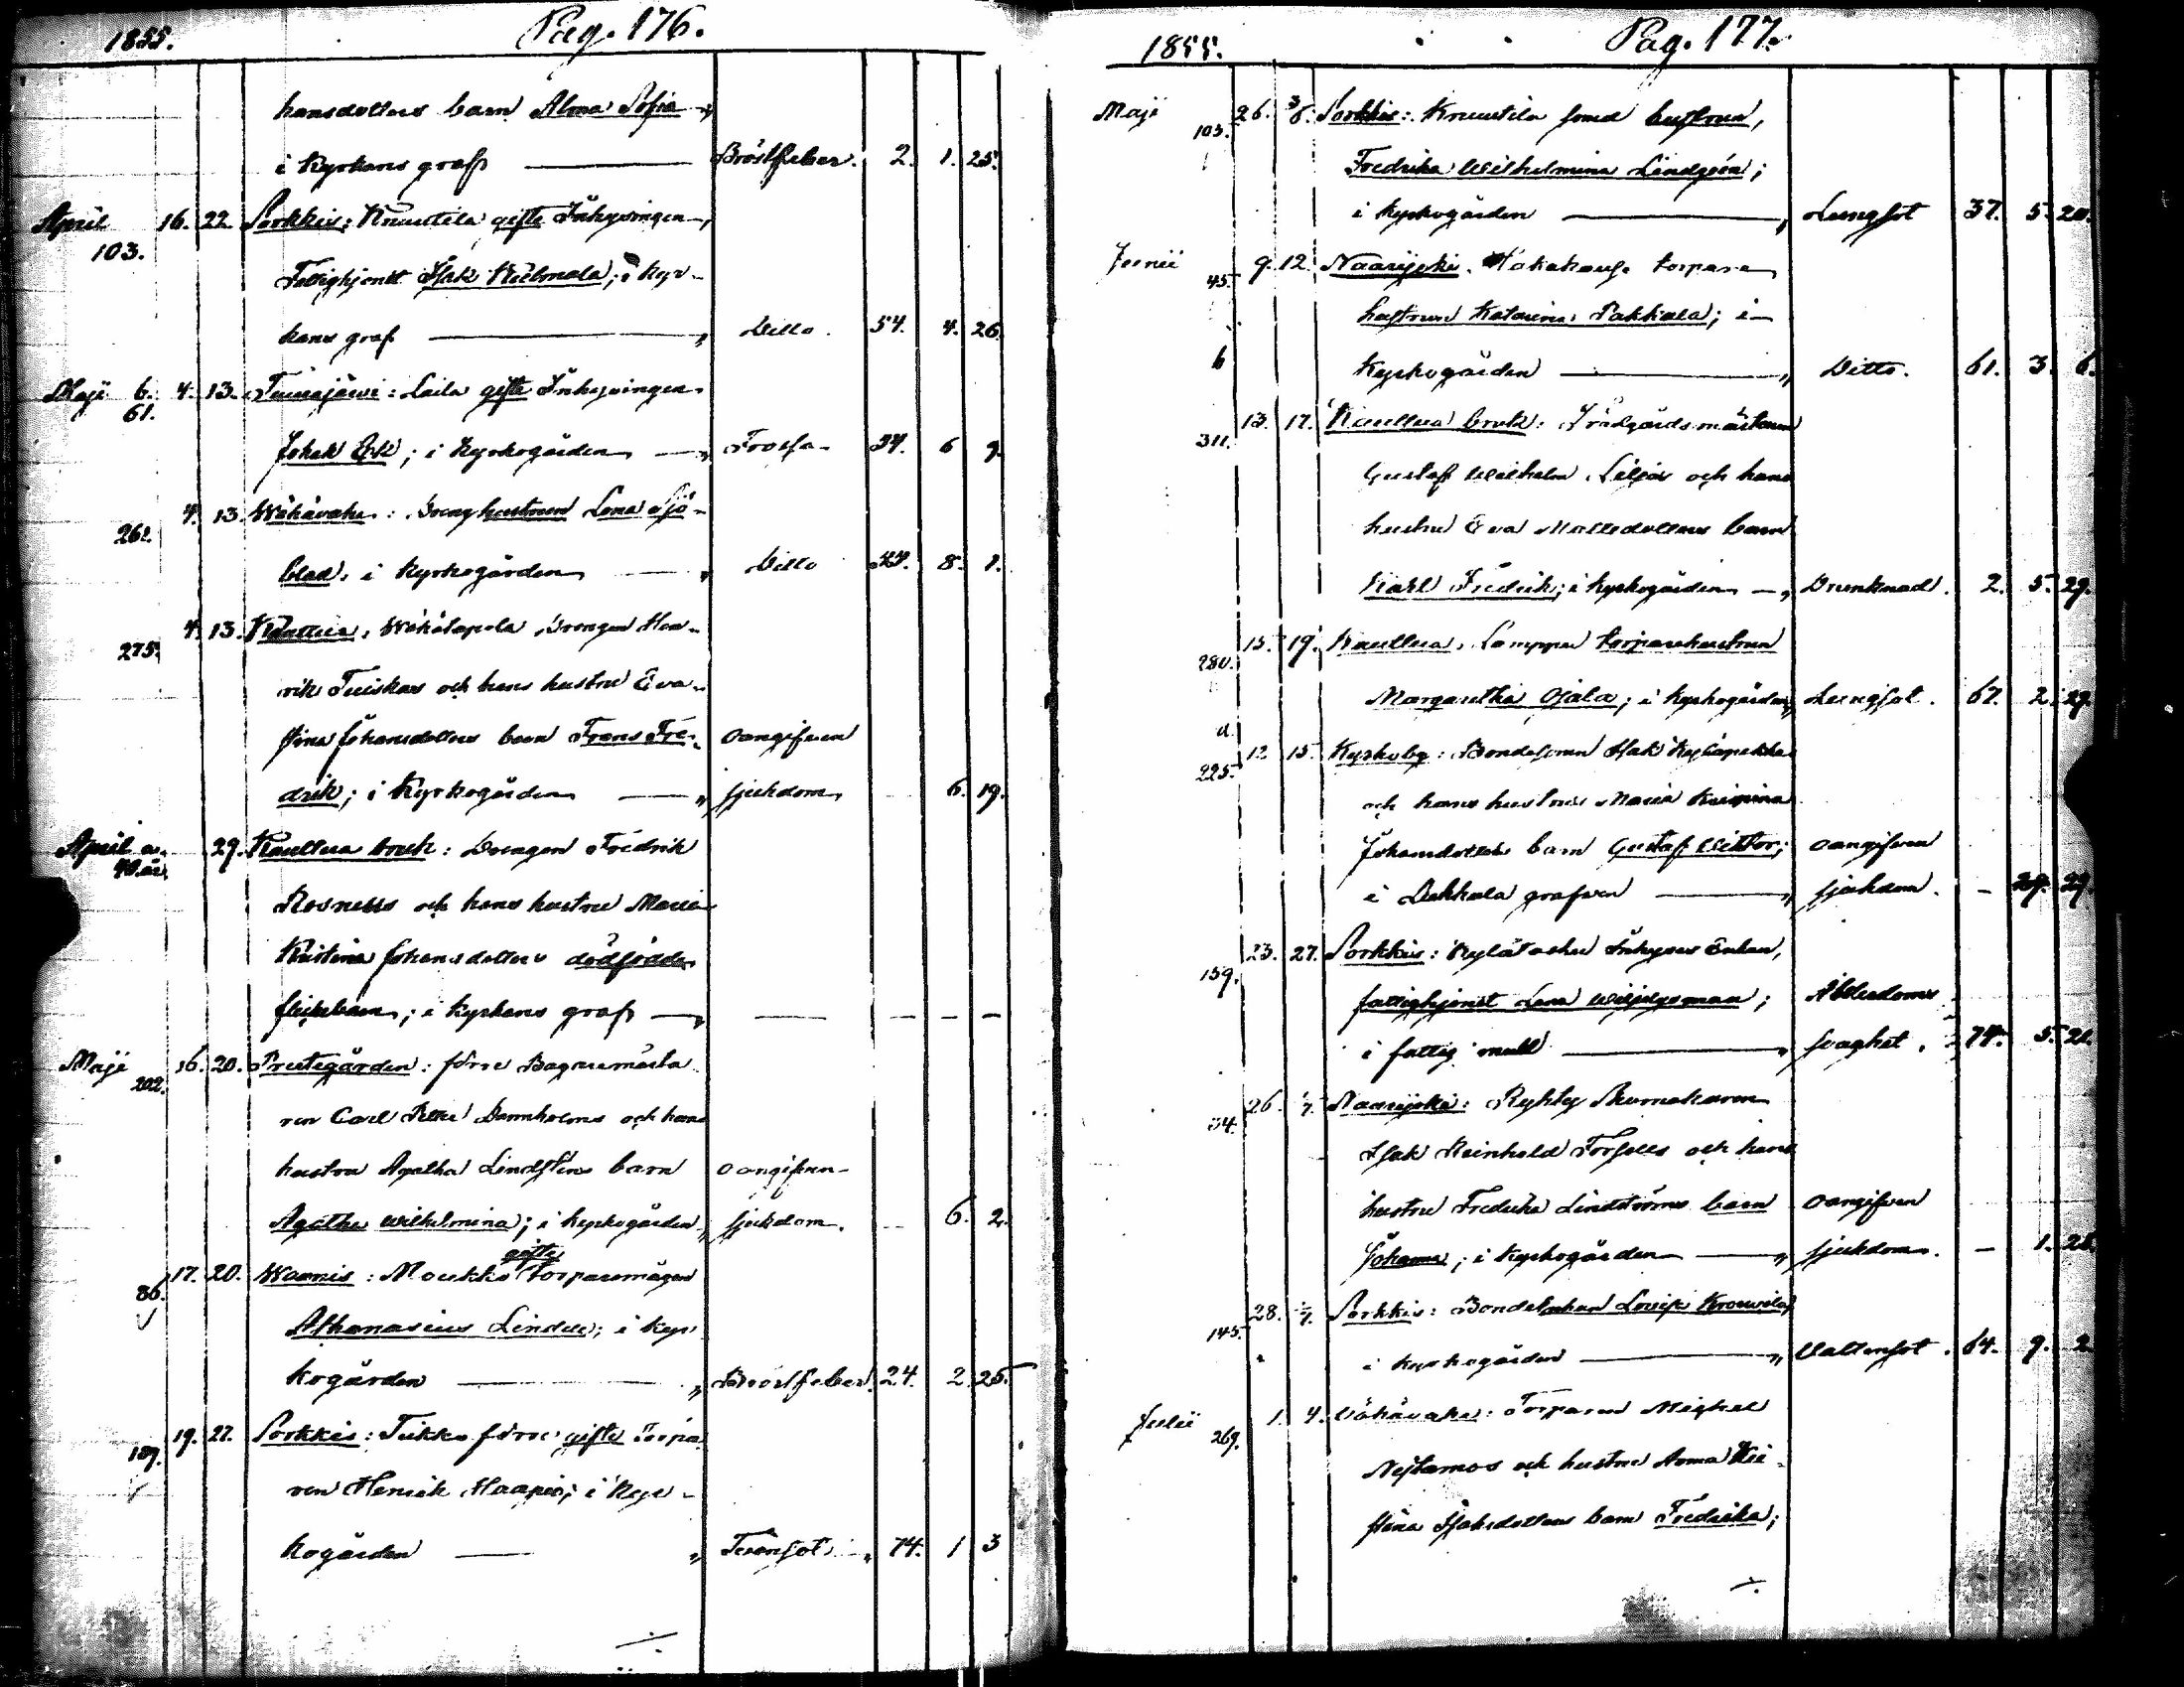 1855. Pag. 176.
hansdotters barn Alma Sofia
i Kyrkans graf — Bröstfeber. 2. 1. 25.
April 103. 16. 22. Sorkkis: Knuutila gifte Inhysingen,
Fattighjonet Isak Kulmala; i Kyr-
kans graf — Ditto. 54. 4. 26.
Maji 6. 61. 4. 13. Tuiskajärvi: Laila gifte Inhysingen
Johan Erk; i Kyrkogården — Frossa 34. 6 9.
261. 4. 13. Wähävaha: Dräng hustrun Lena Sjö-
blad, i Kyrkogården — Ditto 8. 1.
275. 4. 13. Kauttua, Wähätapola Drängen Hen-
rik Tuiskus och hans hustru Eva
Stina Johansdotters barn Frans Fre- oangifven
drik; i Kyrkogården — sjukdom, 6. 19.
April 29. Kauttua bruk: Drängen Fredrik
Rosnells och hans hustru Maria
Kristina Johansdotters dödfödde
flickebarn; i Kyrkans graf — — — — —
Maji 202. 16. 20. Prestegården: förre Bagaremästa
ren Carl Petter Dannholms och hans
hustru Agatha Lindsténs barn oangifven
Agatha Wilhelmina; i Kyrkogården, sjukdom. 6. 2.
86. 17. 20. Waanis: Moukko gifte torparemågen
Athanasius Lindell; i Kyr
kogården — Bröstfeber. 24. 2. 25.
189. 19. 27. Sorkkis: Tukko förre gifte Torpa
ren Henrik Haapio; i Kyr-
kogården — Tvinsot 74. 1 3
1855. Pag. 177.
Maji 103. 26. 3/6. Sorkkis: Knuutila smed hustrun,
Fredrika Wilhelmina Lindgrén;
i Kyrkogården — Lungsot 37. 5. 20.
Junii 45. 9. 12. Naarijoki. torpare
hustrun Katarina Pakkala; i
6 Kyrkogården — Ditto. 61. 3. 6.
311. 13. 17. Kauttua bruk: Trädgårdsmästaren
Gustaf Wilhelm Liljas och hans
hustru Eva Mattsdotters barn
Karl Fredrik; i Kyrkogården — Drunknad. 2. 5. 29.
280. 15. 19. Kauttua, Lamppu torparehustrun
Margaretha Ojala; i Kyrkogården, Lungsot. 67. 2. 29.
225. 12 15. Kyrkoby: Bondesonen Isak Kyläpekka
och hans hustrus Maria Kristina
Johansdotters barn Gustaf Wiktor; oangifven
i Pakkala grafven — sjukdom. — 29.
159. 23. 27. Sorkkis: Inhyses Enkan,
fattighjonet Lena ; Ålderdoms
i fattig mull — svaghet. 74. 5. 21.
54. 26. Naarijoki: Ryhty Skomakaren
Isak Reinhold Forsells och hans
hustru Fredrika Lindströms barn oangifven
Johanna; i Kyrkogården — sjukdom. — 1. 28.
145. 28. Sorkkis: Bonde enkan Lovisa Krouvila,
i Kyrkogården — Vattensot. 64. 9. 2
Julii 269. 1. 4. Vähävaha: Torparen Michel
Nestamos och hustru Anna Kri-
stina Isaksdotters barn Fredrika;